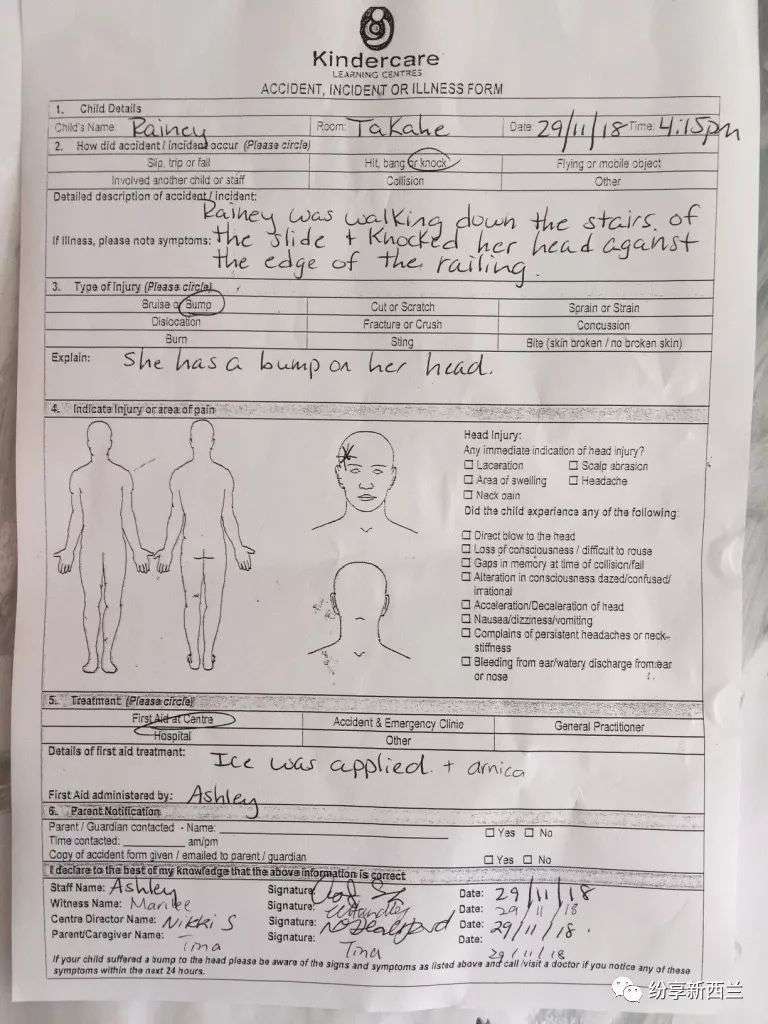 Kindercare
LEARNING CENTRES
ACCIDENT, INCIDENT OR ILLNESS FORM
1. Child Details
Child's Name: Rainey Room: Takahe Date: 29/11/18 Time: 4:15pm
2. How did accident / incident occur (Please circle)
Slip, trip or fall Hit, bang or knock Flying or mobile object
Involved another child or staff Collision Other
Detailed description of accident / incident:
Rainey was walking down the stairs of
If illness, please note symptoms: the slide + knocked her head against
the edge of the railing.
3. Type of Injury (Please circle)
Bruise or Bump Cut or Scratch Sprain or Strain
Dislocation Fracture or Crush Concussion
Burn Sting Bite (skin broken / no broken skin)
Explain: She has a bump on her head.
4. Indicate Injury or area of pain
Head Injury:
Any immediate indication of head injury?
☐ Laceration ☐ Scalp abrasion
☐ Area of swelling ☐ Headache
☐ Neck pain
Did the child experience any of the following
☐ Direct blow to the head
☐ Loss of consciousness / difficult to rouse
☐ Gaps in memory at time of collision/fall
☐ Alteration in consciousness dazed/confused/
irrational
☐ Acceleration/Deceleration of head
☐ Nausea/dizziness/vomiting
☐ Complains of persistent headaches or neck
stiffness
☐ Bleeding from ear/watery discharge from ear
or nose
5. Treatment (Please circle)
First Aid at Centre Accident & Emergency Clinic General Practitioner
Hospital Other
Details of first aid treatment: Ice was applied + arnica
First Aid administered by: Ashley
6. Parent Notification
Parent / Guardian contacted - Name: ☐ Yes ☐ No
Time contacted: am/pm
Copy of accident form given / emailed to parent / guardian ☐ Yes ☐ No
I declare to the best of my knowledge that the above information is correct
Staff Name: Ashley Signature: Date: 29/11/18
Witness Name: Marilee Signature: Date: 29/11/18
Centre Director Name: Nikki S Signature: Date: 29/11/18.
Parent/Caregiver Name: Tina Signature: Tina Date: 29/11/18
If your child suffered a bump to the head please be aware of the signs and symptoms as listed above and call /visit a doctor if you notice any of these
symptoms within the next 24 hours.
纷享新西兰